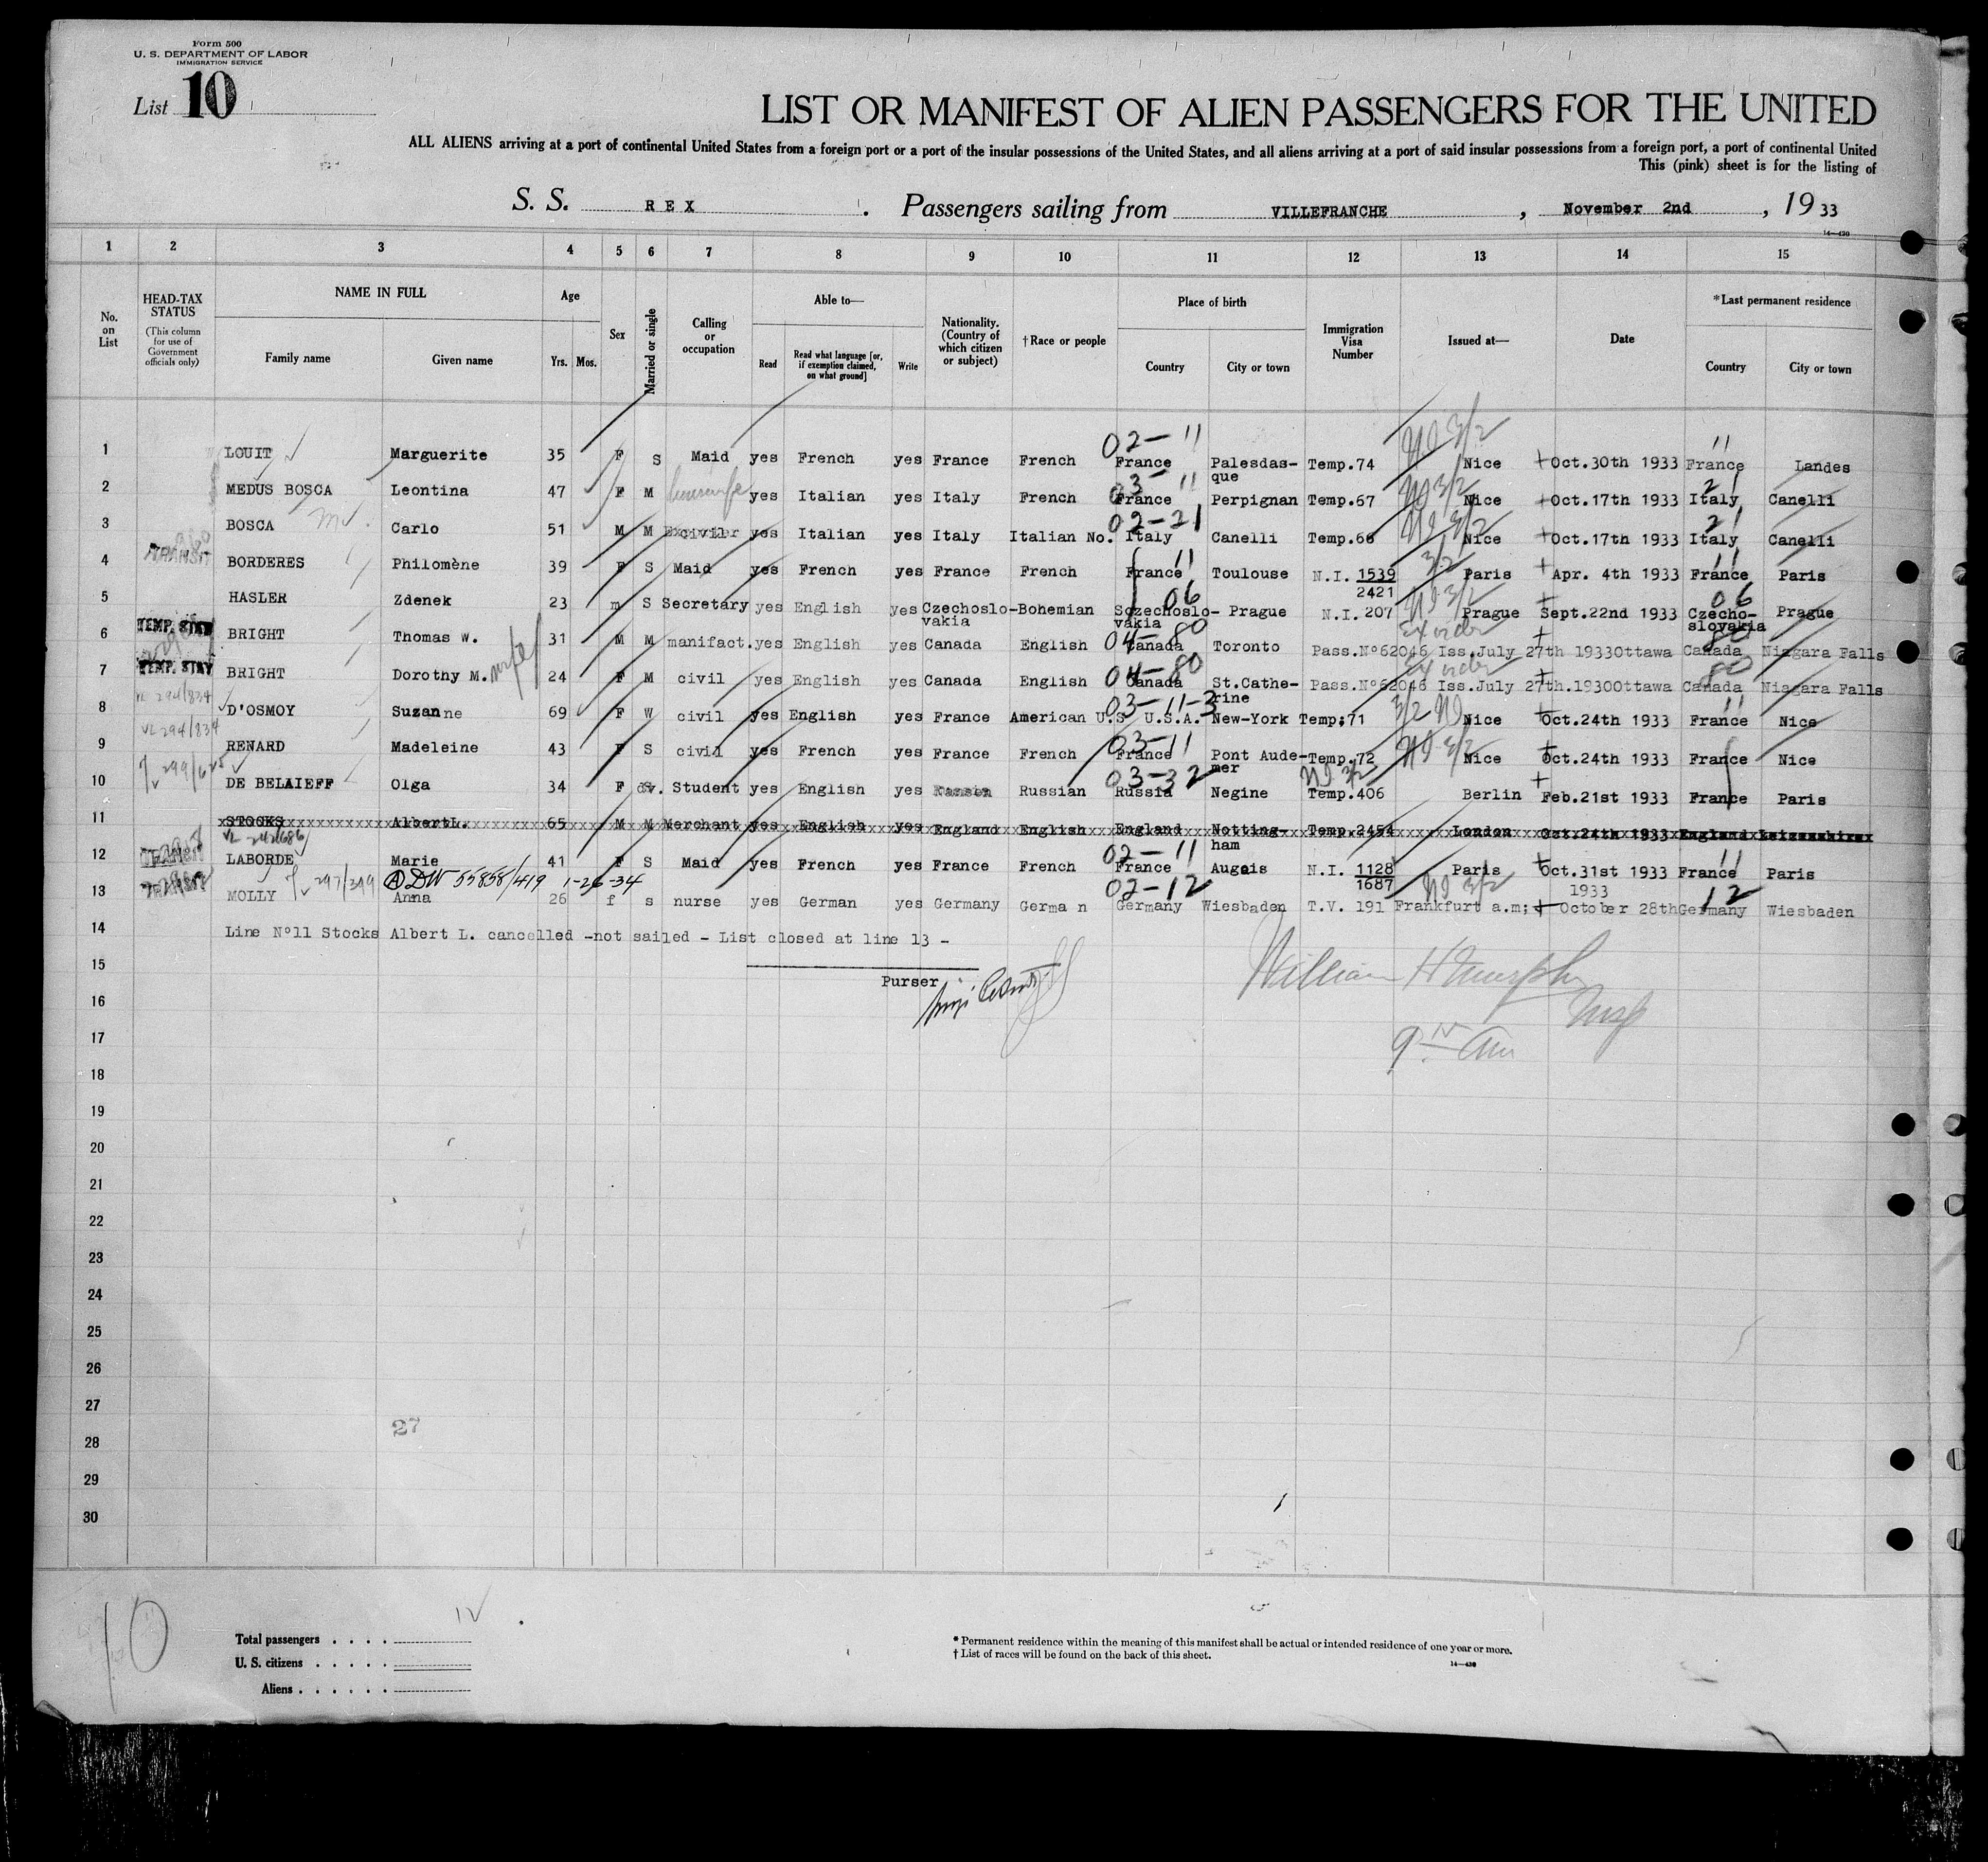 Form 500
U. S. DEPARTMENT OF LABOR
IMMIGRATION SERVICE
List 10
LIST OR MANIFEST OF ALIEN PASSENGERS FOR THE UNITED
ALL ALIENS arriving at a port of continental United States from a foreign port or a port of the insular possessions of the United States, and all aliens arriving at a port of said insular possessions from a foreign port, a port of continental United
This (pink) sheet is for the listing of
S. S. REX. Passengers sailing from VILLEFRANCHE, November 2nd, 19 33
14—430
1 2 3 4 5 6 7 8 9 10 11 12 13 14 15
No. on List
HEAD-TAX STATUS (This column for use of Government officials only)
NAME IN FULL
Family name Given name
Age
Yrs. Mos.
Sex
Married or single
Calling or occupation
Able to—
Read
Read what language [or, if exemption claimed, on what ground]
Write
Nationality. (Country of which citizen or subject)
†Race or people
Place of birth
Country City or town
Immigration Visa Number
Issued at—
Date
*Last permanent residence
Country City or town
02-11 NI 3/2 11
1 LOUIT Marguerite 35 F S Maid yes French yes France French France Palesdas-que Temp.74 Nice Oct.30th 1933 France Landes
03-11 NI 3/2 21
2 MEDUS BOSCA Leontina 47 F M housewife yes Italian yes Italy French France Perpignan Temp.67 Nice Oct.17th 1933 Italy Canelli
02-21 NI 3/2 21
3 BOSCA Carlo 51 M M civil yes Italian yes Italy Italian No. Italy Canelli Temp.66 Nice Oct.17th 1933 Italy Canelli
TRANSIT 11 3/2 11
4 BORDERES Philomène 39 F S Maid yes French yes France French France Toulouse N.I. 1539/2421 Paris Apr. 4th 1933 France Paris
06 NI 3/2 06
5 HASLER Zdenek 23 m S Secretary yes English yes Czechoslo-vakia Bohemian Sczechoslo-vakia Prague N.I. 207 Prague Sept.22nd 1933 Czecho-slovakia Prague
TEMP. STAY 04-80 Ex order 80
6 BRIGHT Thomas W. 31 M M manifact. yes English yes Canada English Canada Toronto Pass.N°62046 Iss.July 27th 1933 Ottawa Canada Niagara Falls
TEMP. STAY 04-80 Ex order 80
7 BRIGHT Dorothy M. wife 24 F M civil yes English yes Canada English Canada St.Cathe-rine Pass.N°62046 Iss.July 27th.1930 Ottawa Canada Niagara Falls
VL 294/834 03-11-3 3/2 NI 11
8 D'OSMOY Suzanne 69 F W civil yes English yes France American U.S U.S.A. New-York Temp;71 Nice Oct.24th 1933 France Nice
VL 294/834 03-11 NI 3/2
9 RENARD Madeleine 43 F S civil yes French yes France French France Pont Aude-mer Temp.72 Nice Oct.24th 1933 France Nice
03-32 NI 3/2
10 DE BELAIEFF Olga 34 F Student yes English yes Russian Russia Negine Temp.406 Berlin Feb.21st 1933 France Paris
11 STOCKS Albert L. 65 M M Merchant yes English yes England English England Notting-ham Temp.2454 London Oct.24th 1933 England
02-11 11
12 LABORDE Marie 41 F S Maid yes French yes France French France Augeis N.I. 1128/1687 Paris Oct.31st 1933 France Paris
297/319 DW 55858/419 1-26-34 02-12 NI 3/2 12
13 MOLLY Anna 26 f s nurse yes German yes Germany Germa n Germany Wiesbaden T.V. 191 Frankfurt a.m; October 28th 1933 Germany Wiesbaden
14 Line N°11 Stocks Albert L. cancelled -not sailed - List closed at line 13 -
15
Purser
William H Murphy
16
Insp
17
18
19
20
21
22
23
24
25
26
27
27
28
29
30
10
Total passengers
U. S. citizens
Aliens
* Permanent residence within the meaning of this manifest shall be actual or intended residence of one year or more.
† List of races will be found on the back of this sheet.
14—430